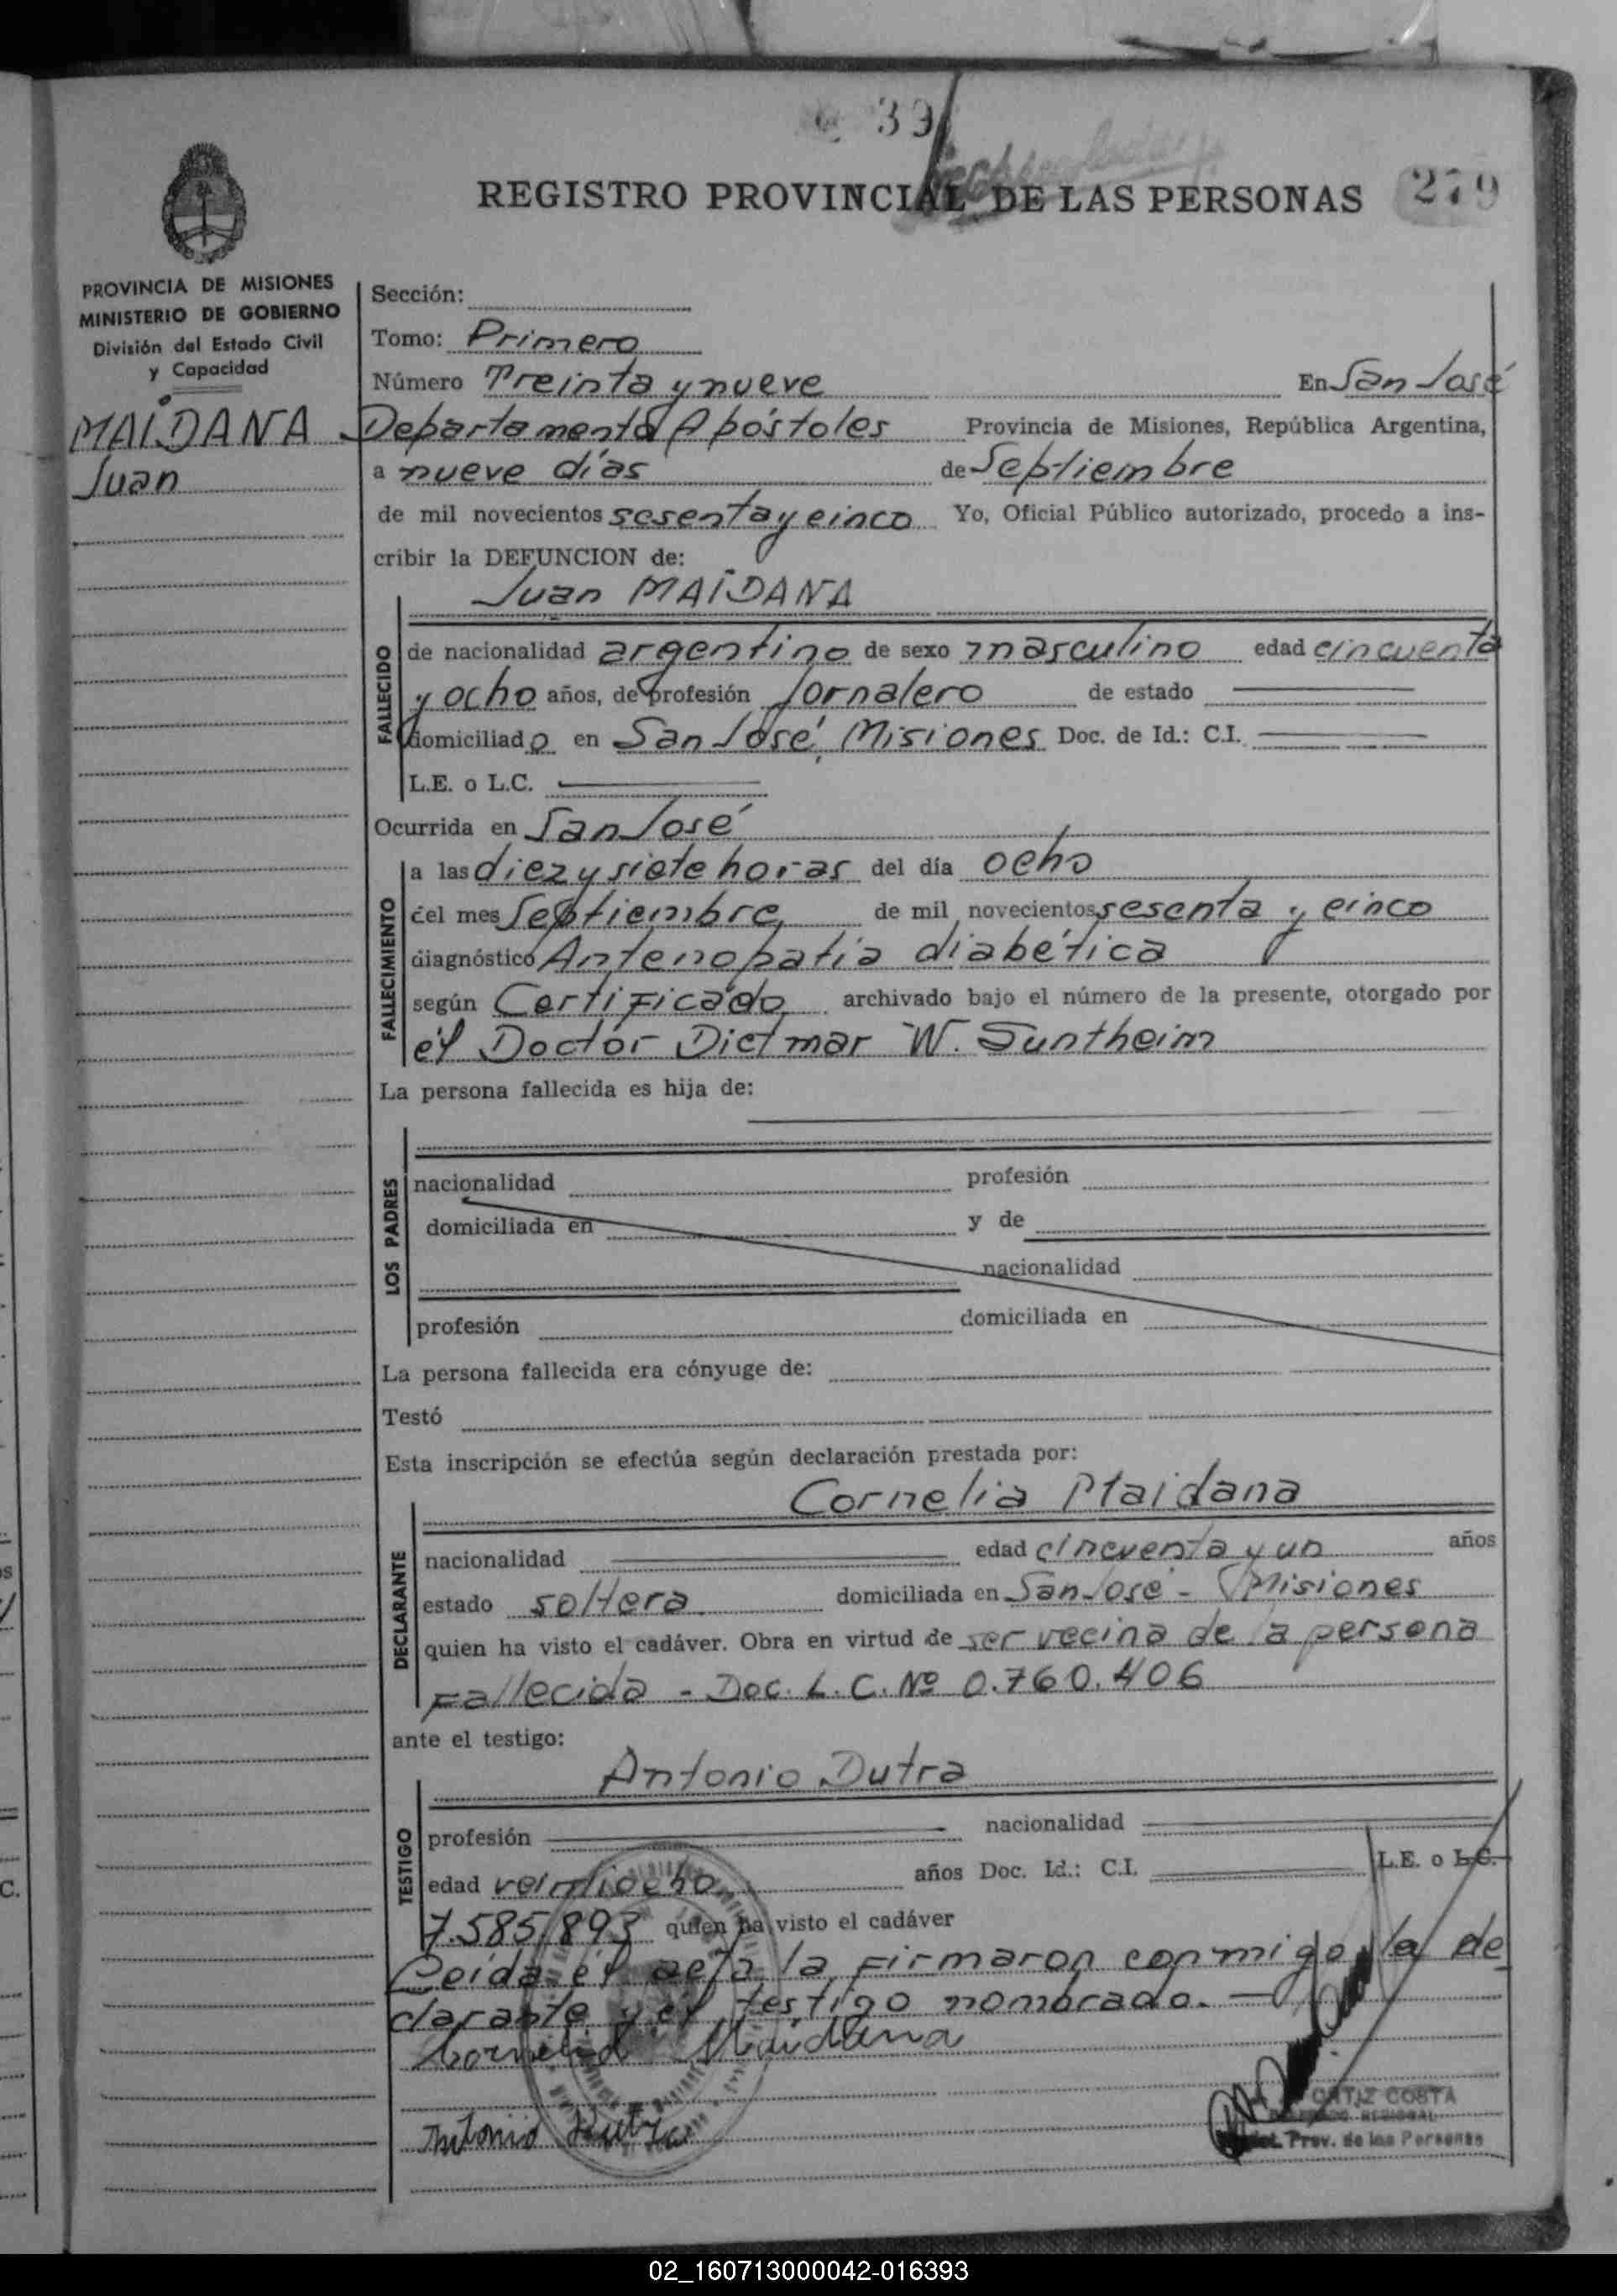 39
REGISTRO PROVINCIAL DE LAS PERSONAS
279
PROVINCIA DE MISIONES
MINISTERIO DE GOBIERNO
División del Estado Civil
y Capacidad
MAIDANA
Juan
Sección:
Tomo: Primero
Número Treinta y nueve En San José
Departamento Apóstoles Provincia de Misiones, República Argentina,
a nueve días de Septiembre
de mil novecientos sesenta y cinco Yo, Oficial Público autorizado, procedo a ins-
cribir la DEFUNCION de:
Juan MAIDANA
FALLECIDO
de nacionalidad argentino de sexo masculino edad cincuenta
y ocho años, de profesión Jornalero de estado
domiciliado en San José, Misiones Doc. de Id.: C.I.
L.E. o L.C.
Ocurrida en San José
FALLECIMIENTO
a las diez y siete horas del día ocho
del mes Septiembre de mil novecientos sesenta y cinco
diagnóstico diabética
según Certificado archivado bajo el número de la presente, otorgado por
el Doctor Dietmar W. Suntheim
La persona fallecida es hija de:
LOS PADRES
nacionalidad profesión
domiciliada en y de
nacionalidad
profesión domiciliada en
La persona fallecida era cónyuge de:
Testó
Esta inscripción se efectúa según declaración prestada por:
Cornelia Maidana
DECLARANTE
nacionalidad edad cincuenta y un años
estado soltera domiciliada en San José - Misiones
quien ha visto el cadáver. Obra en virtud de ser vecina de la persona
Fallecida - Doc. L.C. Nº 0.760.406
ante el testigo:
Antonio Dutra
TESTIGO
profesión nacionalidad
edad veintiocho años Doc. Id.: C.I. L.E. o L.C.
7.585.893 quien ha visto el cadáver
Leida el acta la Firmaron conmigo la de
clarante y el testigo nombrado. —
Cornelia Maidana
Antonio Dutra
ORTIZ COSTA
DELEGADO REGIONAL
Prov. de las Personas
02_160713000042-016393